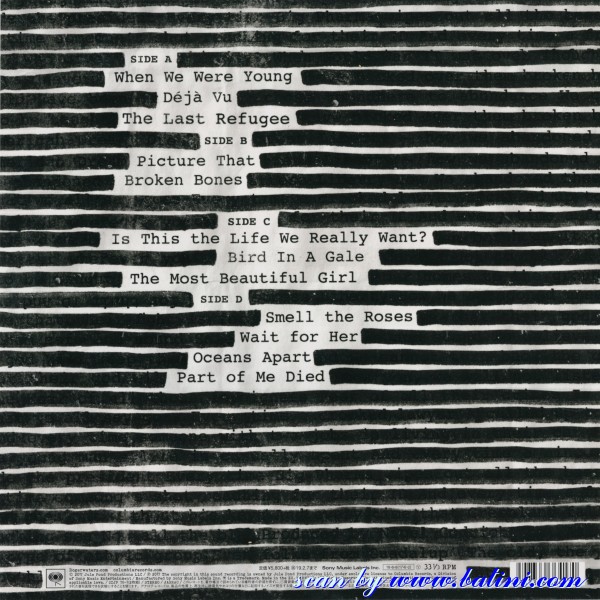 SIDE A
When We Were Young
Déjà Vu
The Last Refugee
SIDE B
Picture That
Broken Bones
SIDE C
Is This the Life We Really Want?
Bird In A Gale
The Most Beautiful Girl
SIDE D
Smell the Roses
Wait for Her
Oceans Apart
Part of Me Died
Rogerwaters.com columbiarecords.com
Sony Music Labels Inc.
33⅓ RPM
scan by www.batini.com